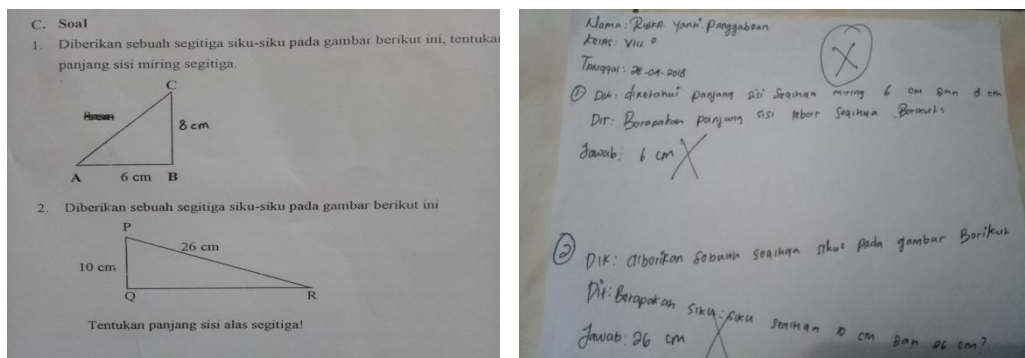 C. Soal
1. Diberikan sebuah segitiga siku-siku pada gambar berikut ini, tentukan
panjang sisi miring segitiga.
C
8 cm
A 6 cm B
2. Diberikan sebuah segitiga siku-siku pada gambar berikut ini
P
26 cm
10 cm
Q R
Tentukan panjang sisi alas segitiga!
Nama: Riska Yanni Panggabean
Kelas: VIII
Tanggal: 28-04-2018
① Dik: diketahui panjang sisi segitiga miring 6 cm dan 8 cm
Dit: Berapakah panjang sisi segitiga Berikut:
Jawab: 6 cm
② Dik: diberikan sebuah segitiga siku² pada gambar Berikut
Dit: Berapakah siku-siku segitiga 10 cm dan 26 cm?
Jawab: 26 cm